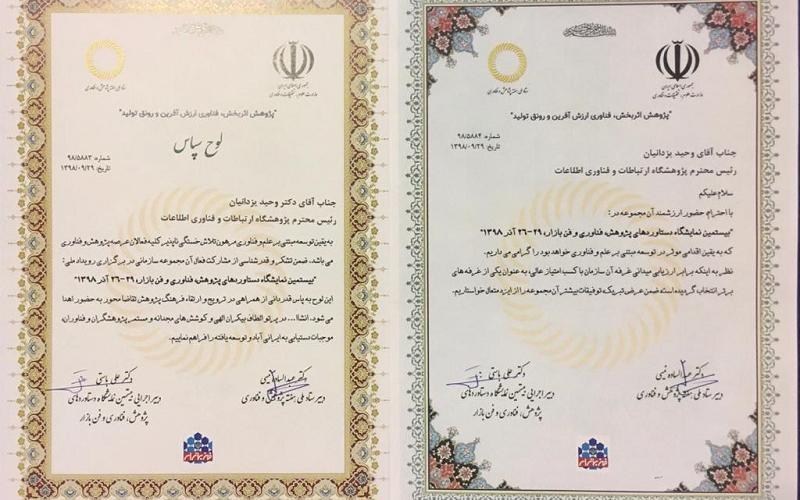 ستاد ملی هفته پژوهش و فناوری
جمهوری اسلامی ایران
وزارت علوم، تحقیقات و فناوری
"پژوهش اثربخش، فناوری ارزش آفرین و رونق تولید"
لوح سپاس
شماره: ۹۸/۵۸۸۳
تاریخ: ۱۳۹۸/۰۹/۲۹
جناب آقای دکتر وحید یزدانیان
رئیس محترم پژوهشگاه ارتباطات و فناوری اطلاعات
به یقین توسعه مبتنی بر علم و فناوری مرهون تلاش خستگی ناپذیر کلیه فعالان عرصه پژوهش و فناوری
می باشد. ضمن تشکر و قدرشناسی از مشارکت فعال آن مجموعه سازمانی در برگزاری رویداد ملی:
"بیستمین نمایشگاه دستاوردهای پژوهش، فناوری و فن بازار، ۲۹-۲۶ آذر ۱۳۹۸"
این لوح به پاس قدردانی از همراهی در ترویج و ارتقاء فرهنگ پژوهش تقاضا محور به حضور اهدا
می شود. انشاا... در پرتو الطاف بیکران الهی و کوشش های مجدانه و مستمر پژوهشگران و فناوران،
موجبات دستیابی به ایرانی آباد و توسعه یافته را فراهم نماییم.
دکتر عبدالساده نیسی
دبیر ستاد ملی هفته پژوهش و فناوری
دکتر علی باستی
دبیر اجرایی بیستمین نمایشگاه دستاوردهای
پژوهش، فناوری و فن بازار
ستاد ملی هفته پژوهش و فناوری
جمهوری اسلامی ایران
وزارت علوم، تحقیقات و فناوری
"پژوهش اثربخش، فناوری ارزش آفرین و رونق تولید"
شماره: ۹۸/۵۸۸۴
تاریخ: ۱۳۹۸/۰۹/۲۹
جناب آقای وحید یزدانیان
رئیس محترم پژوهشگاه ارتباطات و فناوری اطلاعات
سلام علیکم
با احترام حضور ارزشمند آن مجموعه در:
"بیستمین نمایشگاه دستاوردهای پژوهش، فناوری و فن بازار، ۲۹-۲۶ آذر ۱۳۹۸"
که به یقین اقدامی موثر در توسعه مبتنی بر علم و فناوری خواهد بود را گرامی می داریم.
نظر به اینکه برابر ارزیابی میدانی غرفه آن سازمان با کسب امتیاز عالی، به عنوان یکی از غرفه های
برتر انتخاب گردیده است ضمن عرض تبریک توفیقات بیشتر آن مجموعه را از ایزد متعال خواستاریم.
دکتر عبدالساده نیسی
دبیر ستاد ملی هفته پژوهش و فناوری
دکتر علی باستی
دبیر اجرایی بیستمین نمایشگاه دستاوردهای
پژوهش، فناوری و فن بازار